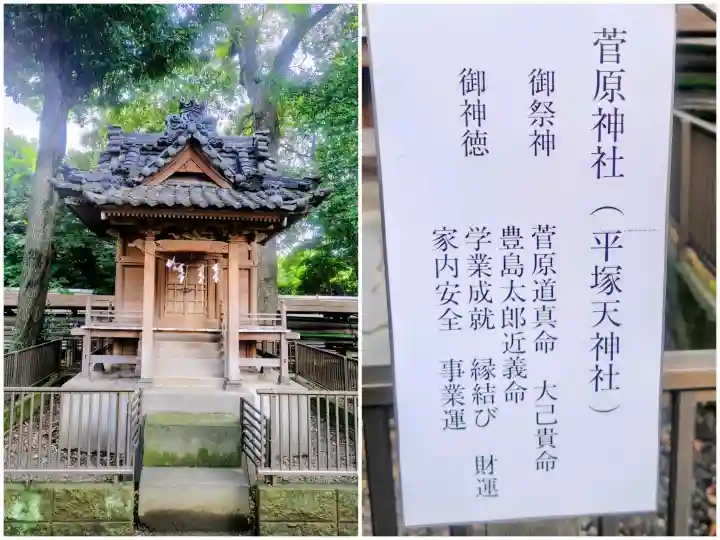 菅原神社（平塚天神社）
御祭神　菅原道真命　大己貴命
豊島太郎近義命
御神徳　学業成就　縁結び　財運
家内安全　事業運